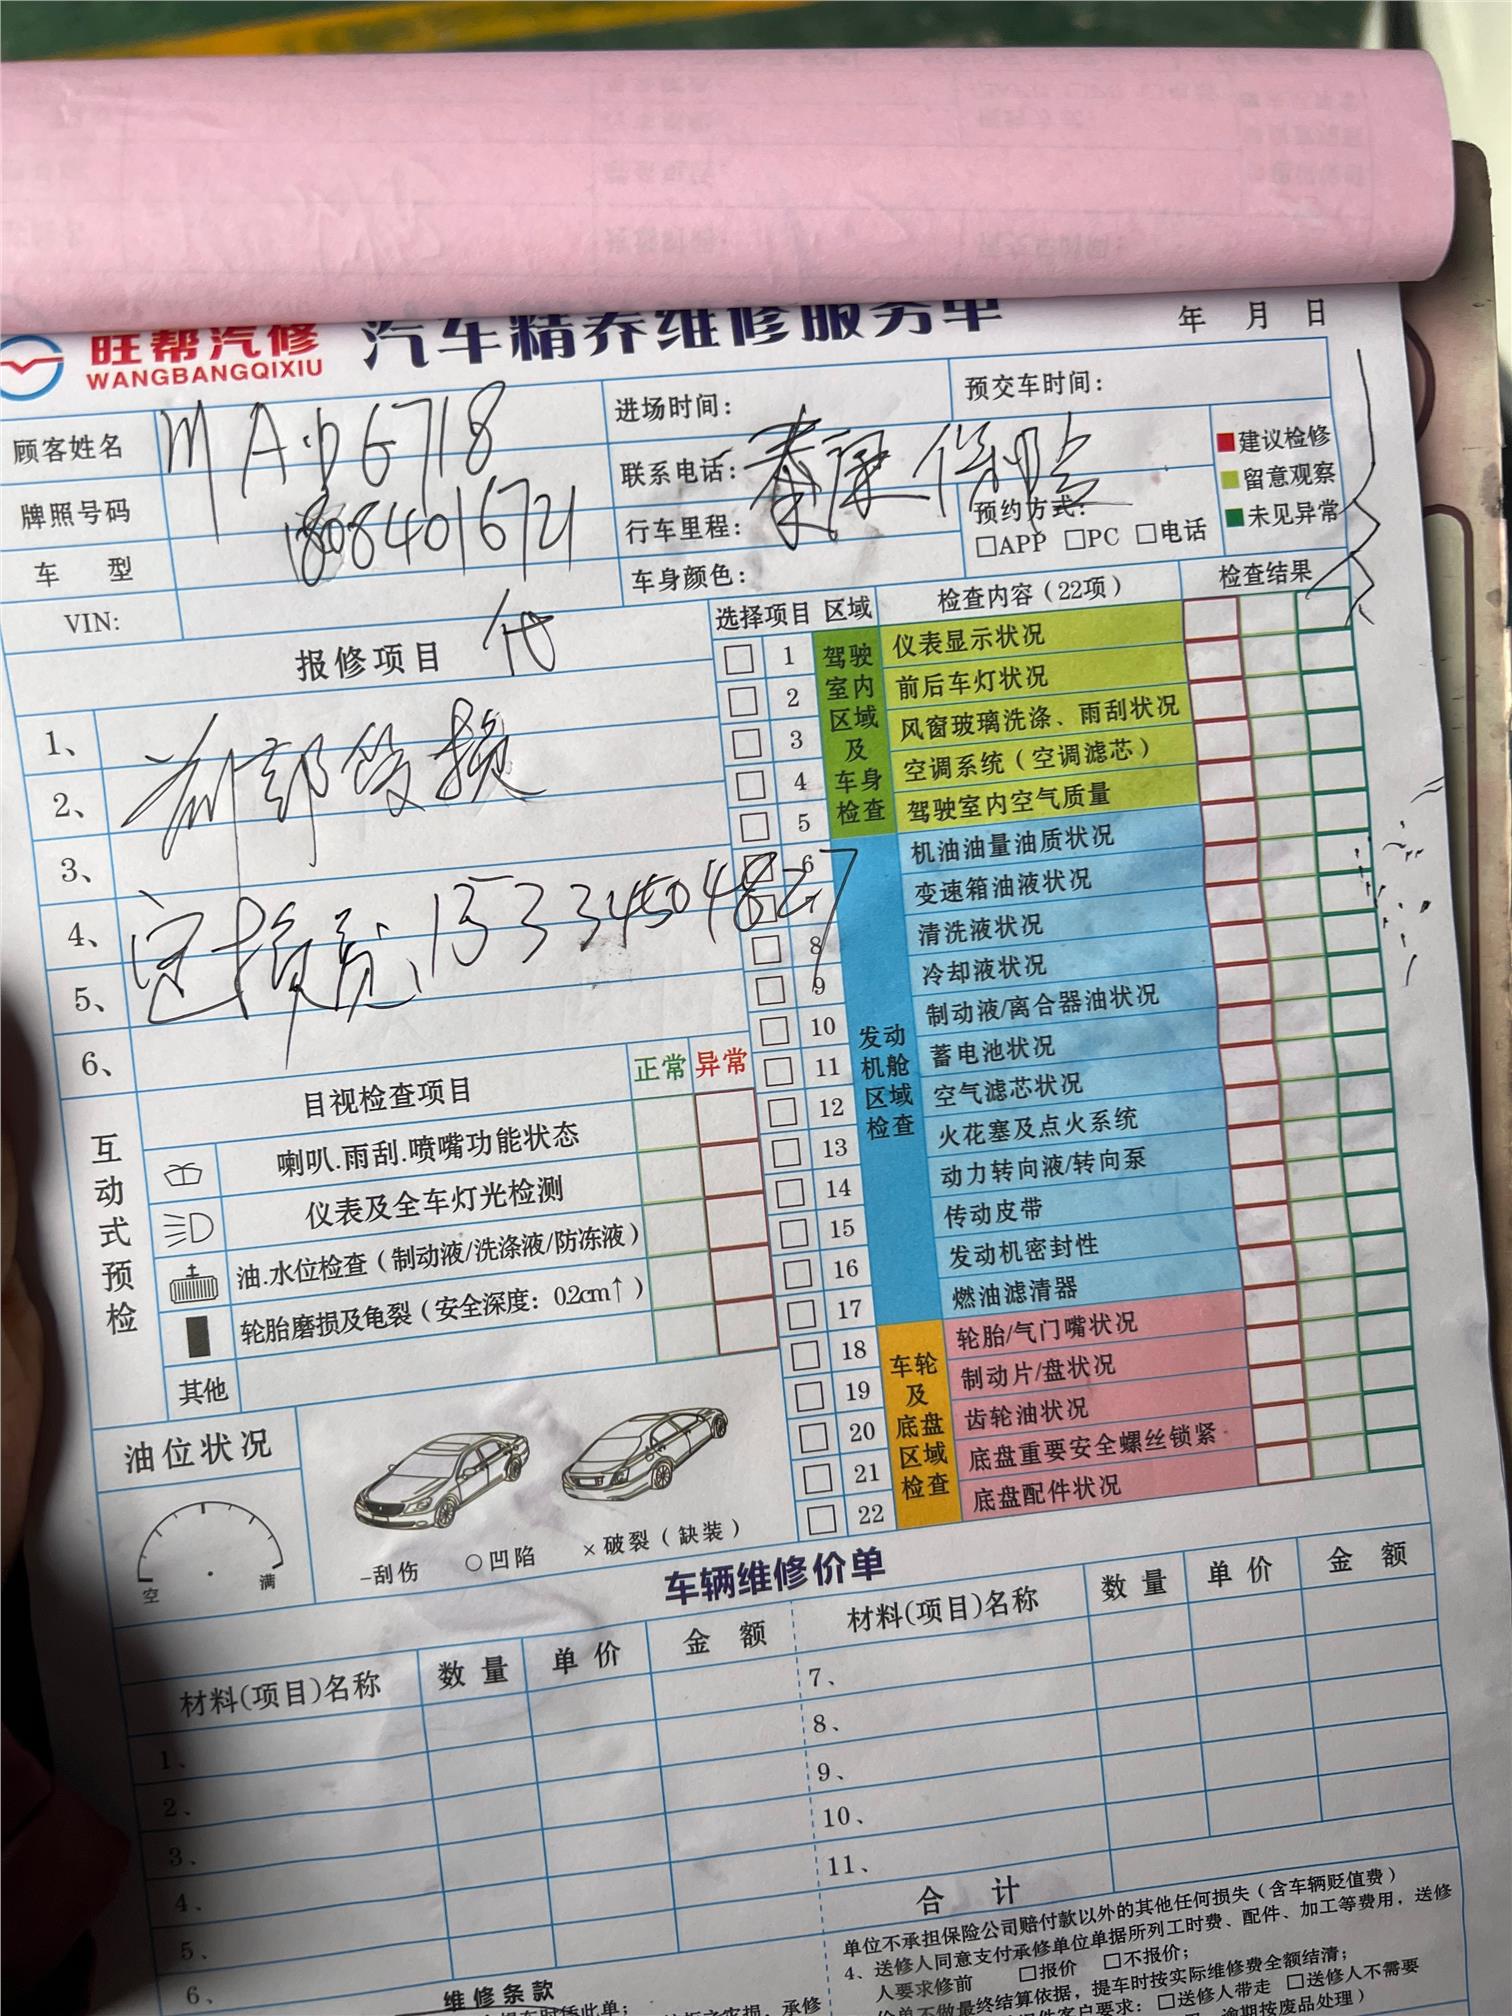 旺帮汽修
WANGBANGQIXIU
汽车精养维修服务单
年 月 日
顾客姓名
A·DG718
进场时间：
预交车时间：
牌照号码
18084016721
联系电话：
泰康保险
车 型
行车里程：
预约方式：
□APP □PC □电话
VIN：
车身颜色：
建议检修
留意观察
未见异常
报修项目
代
选择项目 区域 检查内容（22项） 检查结果
1、
2、
前部修换
3、
4、
定损员、15334504827
5、
6、
驾驶室内区域及车身检查
1 仪表显示状况
2 前后车灯状况
3 风窗玻璃洗涤、雨刮状况
4 空调系统（空调滤芯）
5 驾驶室内空气质量
发动机舱区域检查
6 机油油量油质状况
变速箱油液状况
8 清洗液状况
9 冷却液状况
10 制动液/离合器油状况
11 蓄电池状况
12 空气滤芯状况
13 火花塞及点火系统
14 动力转向液/转向泵
15 传动皮带
16 发动机密封性
17 燃油滤清器
车轮及底盘区域检查
18 轮胎/气门嘴状况
19 制动片/盘状况
20 齿轮油状况
21 底盘重要安全螺丝锁紧
22 底盘配件状况
互动式预检
目视检查项目 正常 异常
喇叭.雨刮.喷嘴功能状态
仪表及全车灯光检测
油.水位检查（制动液/洗涤液/防冻液）
轮胎磨损及龟裂（安全深度：0.2cm↑）
其他
油位状况
空 满
–刮伤 ○凹陷 ×破裂（缺装）
车辆维修价单
材料(项目)名称 数量 单价 金额
材料(项目)名称 数量 单价 金额
1、
2、
3、
4、
5、
6、
7、
8、
9、
10、
11、
合 计
维修条款
单位不承担保险公司赔付款以外的其他任何损失（含车辆贬值费）
4、送修人同意支付承修单位单据所列工时费、配件、加工等费用，送修
人要求修前 □报价 □不报价；
价单不做最终结算依据，提车时按实际维修费全额结清；
客户要求：□送修人带走 □送修人不需要
逾期按废品处理）